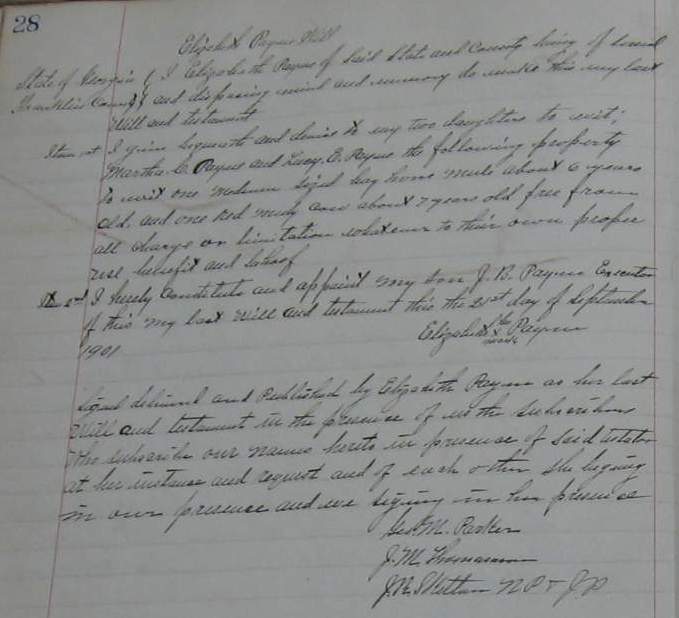 28
Elizabeth Payne Will
State of Georgia { I Elizabeth Payne of said State and County being of sound
Franklin County { and disposing mind and memory do make this my last
Will and testament
Item 1st I give bequeath and devise to my two daughters to wit;
Martha C. Payne and Lucy E. Payne the following property
to wit one medium sized bay horse mule about 6 years
old, and one Red Muly cow about 7 years old free from
all charge or limitation whatever to their own proper
use benefit and behoof
It 2nd I hereby constitute and appoint my son J. R. Payne Executor
of this my last Will and testament this the 21st day of September
1901
Elizabeth her x mark Payne
Signed delivered and Published by Elizabeth Payne as her last
Will and testament in the presence of us the subscribers
Who subscribe our names hereto in presence of said testator
at her instance and request and of each other she signing
in our presence and we signing in her presence
Geo. M. Parker
J. M.
J. R. Skelton N P & J. P